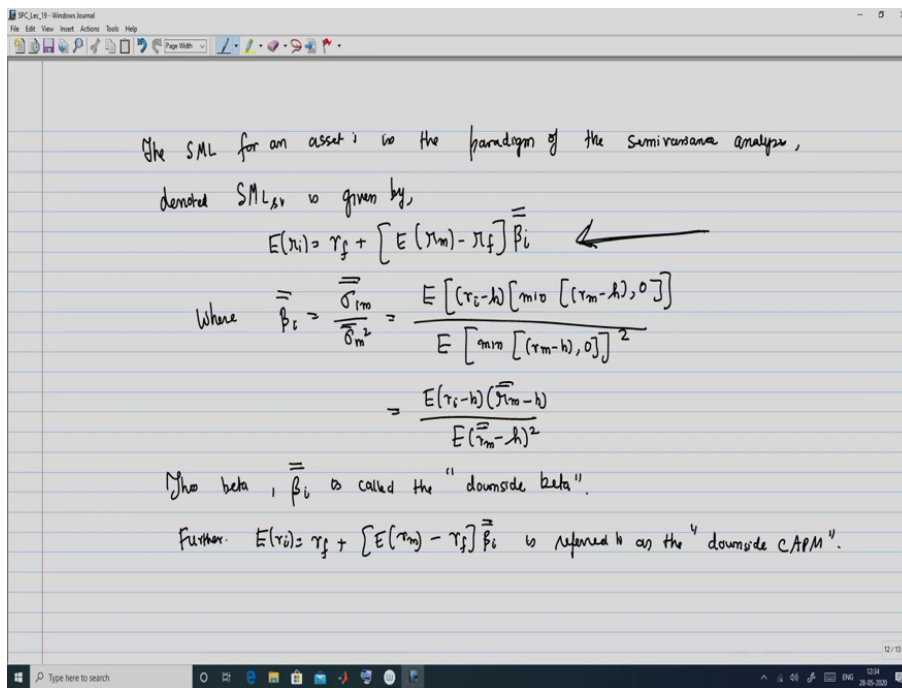 SPC_Lec_19 - Windows Journal
File Edit View Insert Actions Tools Help
Page Width
The SML for an asset i in the paradigm of the semivariance analysis,
denoted SML_sv is given by,
E(r_i) = r_f + [E(r_m) - r_f] β̿_i
Where β̿_i = σ̿_im / σ̿_m² = E[(r_i-h)[min[(r_m-h),0]] / E[min[(r_m-h),0]]²
= E(r_i-h)(r̿_m-h) / E(r̿_m-h)²
This beta, β̿_i is called the "downside beta".
Further. E(r_i) = r_f + [E(r_m) - r_f] β̿_i is referred to as the "downside CAPM".
12 / 13
Type here to search
ENG
12:34
28-05-2020